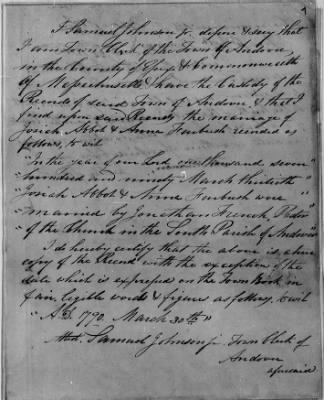 I Samuel Johnson Jr. depose & say that
I am Town Clerk of the Town of Andover
in the County of Essex & Commonwealth
of Massachusetts & have the Custody of the
Records of said Town of Andover, & that I
find upon said Records the marriage of
Josiah Abbot & Anna Furbush recorded as
follows, to wit
"In the year of our Lord one thousand seven"
"hundred and ninety March thirtieth"
"Josiah Abbot & Anna Furbush were"
"married by Jonathan French, Pastor"
"of the Church in the South Parish of Andover"
I do hereby certify that the above is a true
copy of the Record with the exception of the
date which is expressed on the Town Book in
fair, legible words & figures as follows, to wit
"A.D. 1790. March 30th"
Attest, Samuel Johnson jr Town Clerk of
Andover
aforesaid